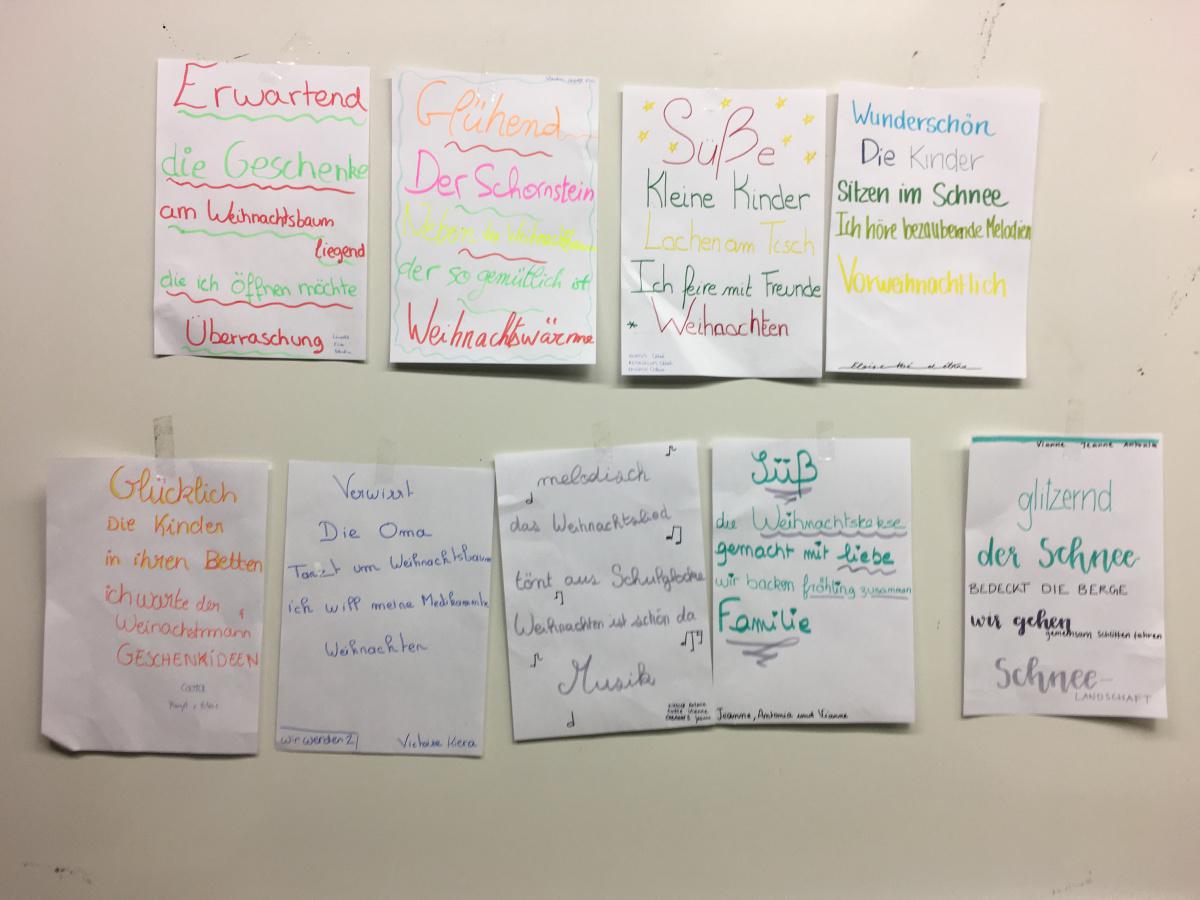 Erwartend
die Geschenke
am Weihnachtsbaum
liegend
die ich öffnen möchte
Überraschung
Glühend
Der Schornstein
Neben
der so gemütlich ist
Weihnachtswärme
Süße
Kleine Kinder
Lachen am Tisch
Ich feire mit Freunde
Weihnachten
Wunderschön
Die Kinder
Sitzen im Schnee
Ich höre bezaubernde Melodien
Vorweihnachtlich
Glücklich
Die Kinder
in ihren Betten
ich warte den
Weinachstmann
GESCHENKiDEEN
Verwirrt
Die Oma
Tanzt um Weihnachtsbaum
ich will meine Medikamente
Weihnachten
wir werden 21
Victoire Kiera
melodisch
das Weihnachtslied
tönt aus Schulglocke
Weihnachten ist schön da
Musik
Süß
die Weihnachtskekse
gemacht mit liebe
wir backen fröhling zusammen
Familie
Jeanne, Antonia und Vianne
Vianne Jeanne Antonia
glitzernd
der Schnee
BEDECKT DIE BERGE
wir gehen
gemeinsam schlitten fahren
Schnee-
LANDSCHAFT